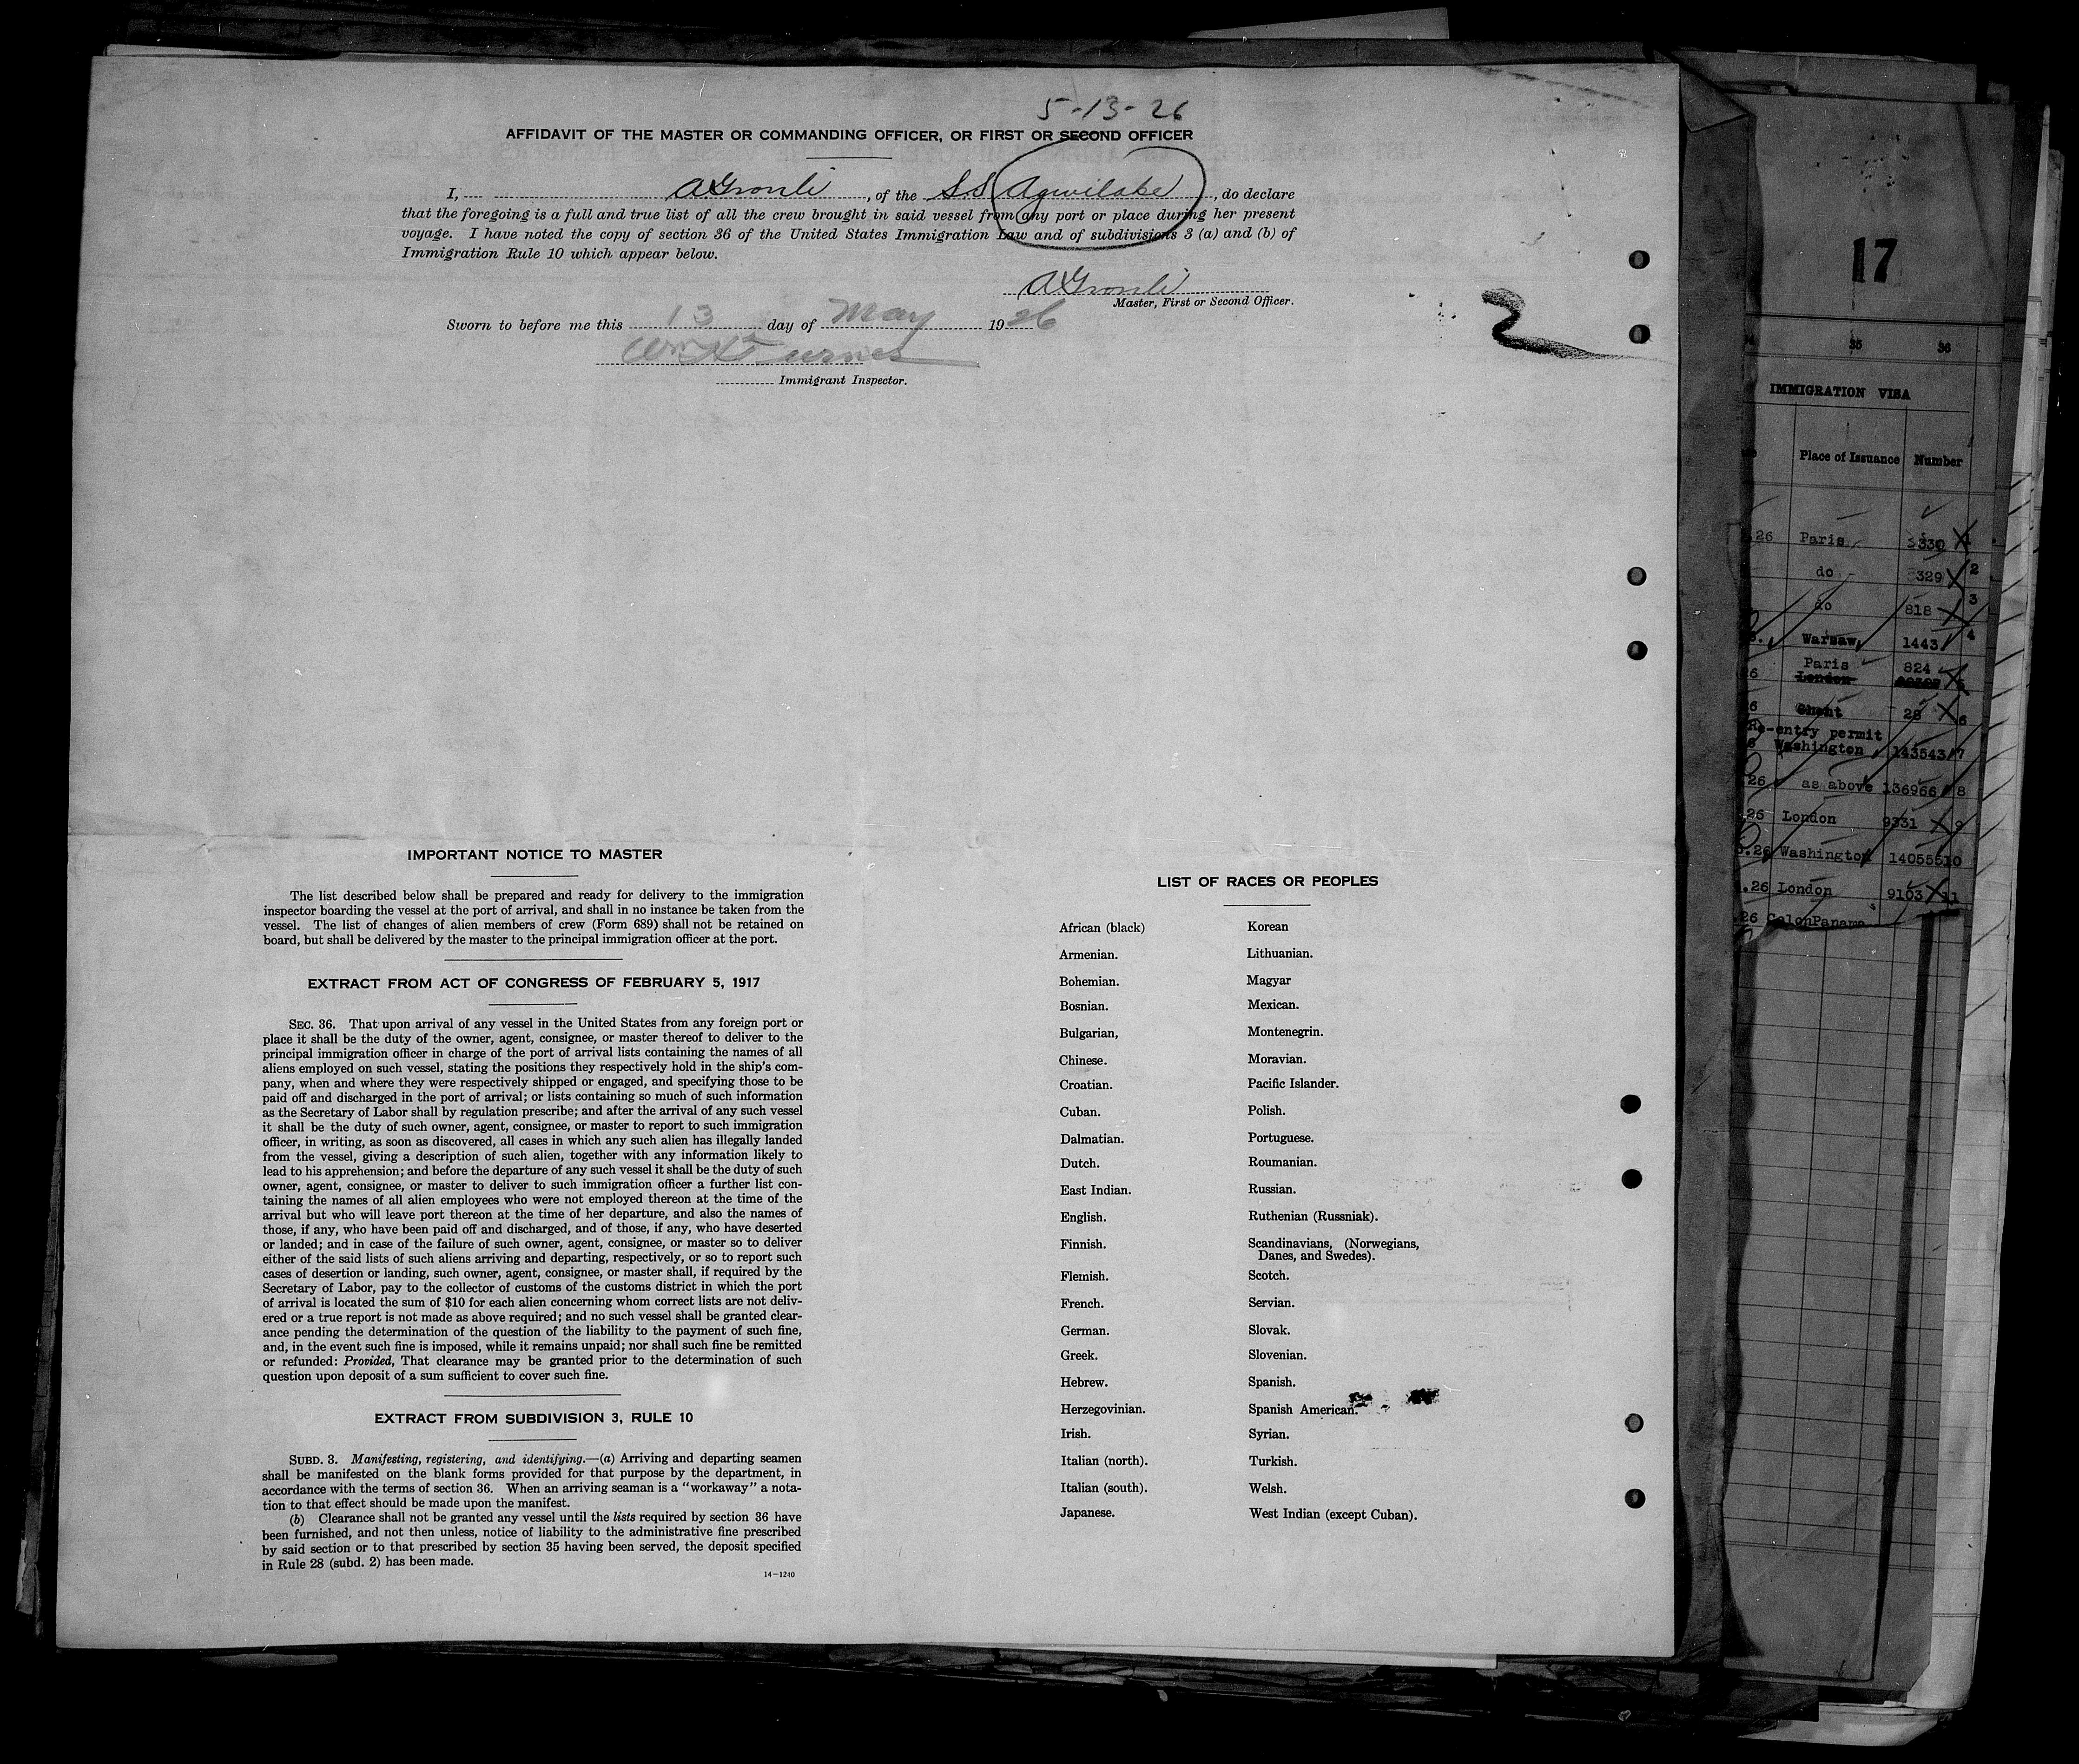 5-13-26
AFFIDAVIT OF THE MASTER OR COMMANDING OFFICER, OR FIRST OR SECOND OFFICER
I, , of the S.S. Agwilake, do declare
that the foregoing is a full and true list of all the crew brought in said vessel from any port or place during her present
voyage. I have noted the copy of section 36 of the United States Immigration Law and of subdivisions 3 (a) and (b) of
Immigration Rule 10 which appear below.
Master, First or Second Officer.
2
Sworn to before me this 13 day of May 1926
Immigrant Inspector.
IMPORTANT NOTICE TO MASTER
The list described below shall be prepared and ready for delivery to the immigration
inspector boarding the vessel at the port of arrival, and shall in no instance be taken from the
vessel. The list of changes of alien members of crew (Form 689) shall not be retained on
board, but shall be delivered by the master to the principal immigration officer at the port.
EXTRACT FROM ACT OF CONGRESS OF FEBRUARY 5, 1917
SEC. 36. That upon arrival of any vessel in the United States from any foreign port or
place it shall be the duty of the owner, agent, consignee, or master thereof to deliver to the
principal immigration officer in charge of the port of arrival lists containing the names of all
aliens employed on such vessel, stating the positions they respectively hold in the ship's com-
pany, when and where they were respectively shipped or engaged, and specifying those to be
paid off and discharged in the port of arrival; or lists containing so much of such information
as the Secretary of Labor shall by regulation prescribe; and after the arrival of any such vessel
it shall be the duty of such owner, agent, consignee, or master to report to such immigration
officer, in writing, as soon as discovered, all cases in which any such alien has illegally landed
from the vessel, giving a description of such alien, together with any information likely to
lead to his apprehension; and before the departure of any such vessel it shall be the duty of such
owner, agent, consignee, or master to deliver to such immigration officer a further list con-
taining the names of all alien employees who were not employed thereon at the time of the
arrival but who will leave port thereon at the time of her departure, and also the names of
those, if any, who have been paid off and discharged, and of those, if any, who have deserted
or landed; and in case of the failure of such owner, agent, consignee, or master so to deliver
either of the said lists of such aliens arriving and departing, respectively, or so to report such
cases of desertion or landing, such owner, agent, consignee, or master shall, if required by the
Secretary of Labor, pay to the collector of customs of the customs district in which the port
of arrival is located the sum of $10 for each alien concerning whom correct lists are not deliv-
ered or a true report is not made as above required; and no such vessel shall be granted clear-
ance pending the determination of the question of the liability to the payment of such fine,
and, in the event such fine is imposed, while it remains unpaid; nor shall such fine be remitted
or refunded: Provided, That clearance may be granted prior to the determination of such
question upon deposit of a sum sufficient to cover such fine.
EXTRACT FROM SUBDIVISION 3, RULE 10
SUBD. 3. Manifesting, registering, and identifying.—(a) Arriving and departing seamen
shall be manifested on the blank forms provided for that purpose by the department, in
accordance with the terms of section 36. When an arriving seaman is a "workaway" a nota-
tion to that effect should be made upon the manifest.
(b) Clearance shall not be granted any vessel until the lists required by section 36 have
been furnished, and not then unless, notice of liability to the administrative fine prescribed
by said section or to that prescribed by section 35 having been served, the deposit specified
in Rule 28 (subd. 2) has been made.
14—1240
LIST OF RACES OR PEOPLES
African (black) Korean
Armenian. Lithuanian.
Bohemian. Magyar
Bosnian. Mexican.
Bulgarian, Montenegrin.
Chinese. Moravian.
Croatian. Pacific Islander.
Cuban. Polish.
Dalmatian. Portuguese.
Dutch. Roumanian.
East Indian. Russian.
English. Ruthenian (Russniak).
Finnish. Scandinavians, (Norwegians,
Danes, and Swedes).
Flemish. Scotch.
French. Servian.
German. Slovak.
Greek. Slovenian.
Hebrew. Spanish.
Herzegovinian. Spanish American.
Irish. Syrian.
Italian (north). Turkish.
Italian (south). Welsh.
Japanese. West Indian (except Cuban).
17
35 36
IMMIGRATION VISA
Place of Issuance Number
.26 Paris 330 1
do 329 2
do 818 3
Warsaw 1443 4
Paris 824
26 London 5
6 Ghent 28 6
Re-entry permit
Washington 143543 7
.26 as above 136966 8
.26 London 9331 9
.26 Washington 140555 10
.26 London 9103 11
.26 Colon Panama